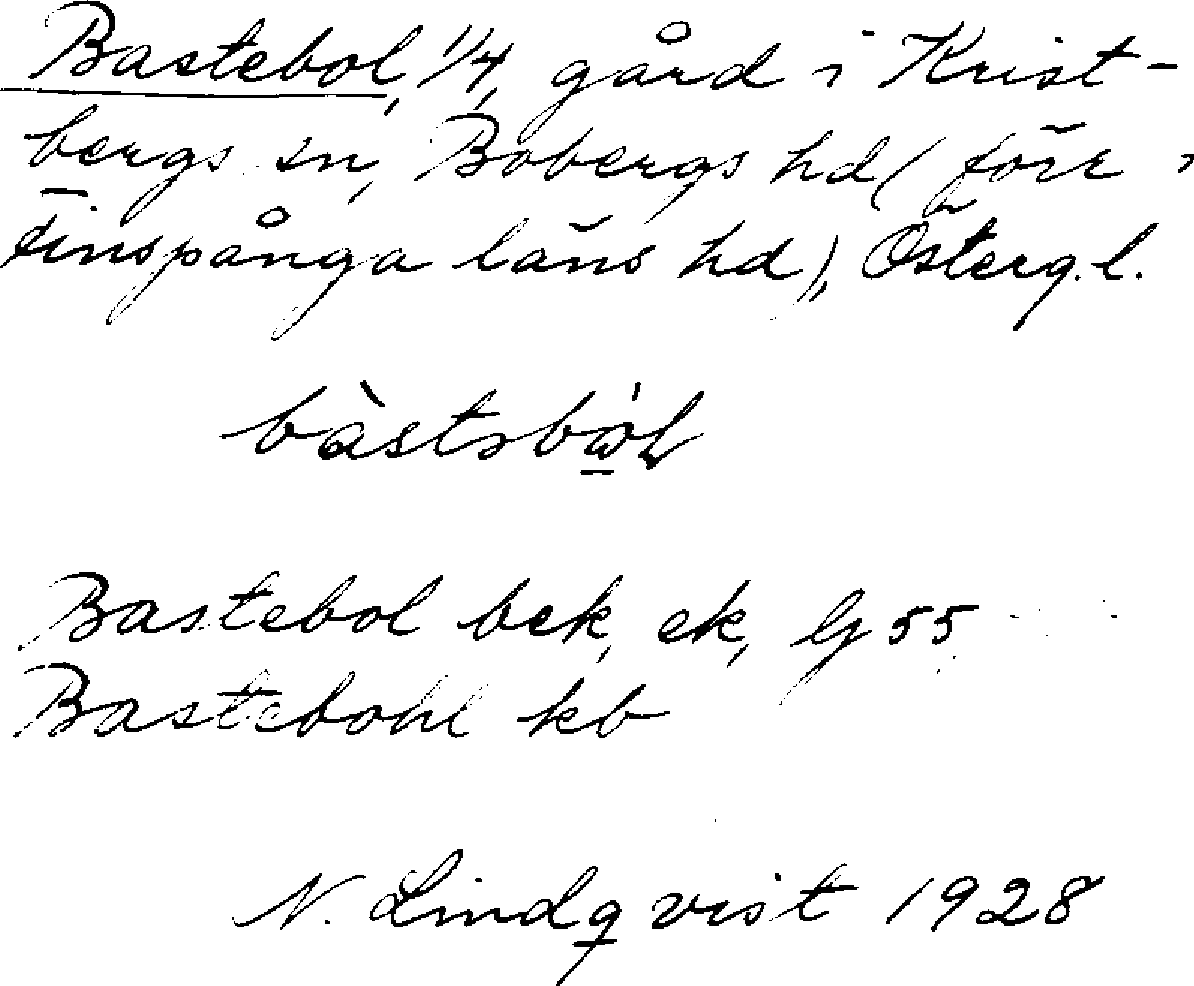 Bastebol, 1/4, gård i Krist-
bergs sn, Bobergs hd (förr i
Finspånga läns hd), Österg.l.
Bastebol bek, ek, Gj 55
Bastebohl kb
N. Lindqvist 1928